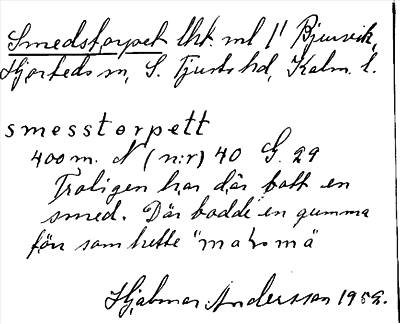 Smedstorpet lht. ml 1/1 Bjursvik,
Hjorteds sn, S. Tjusts hd, Kalm. l.
smesstorpett
400 m. N (n:r) 40 G. 29
Troligen har där bott en
smed. Där bodde en gumma
förr som hette "mahrmä"
Hjalmar Andersson 1952.